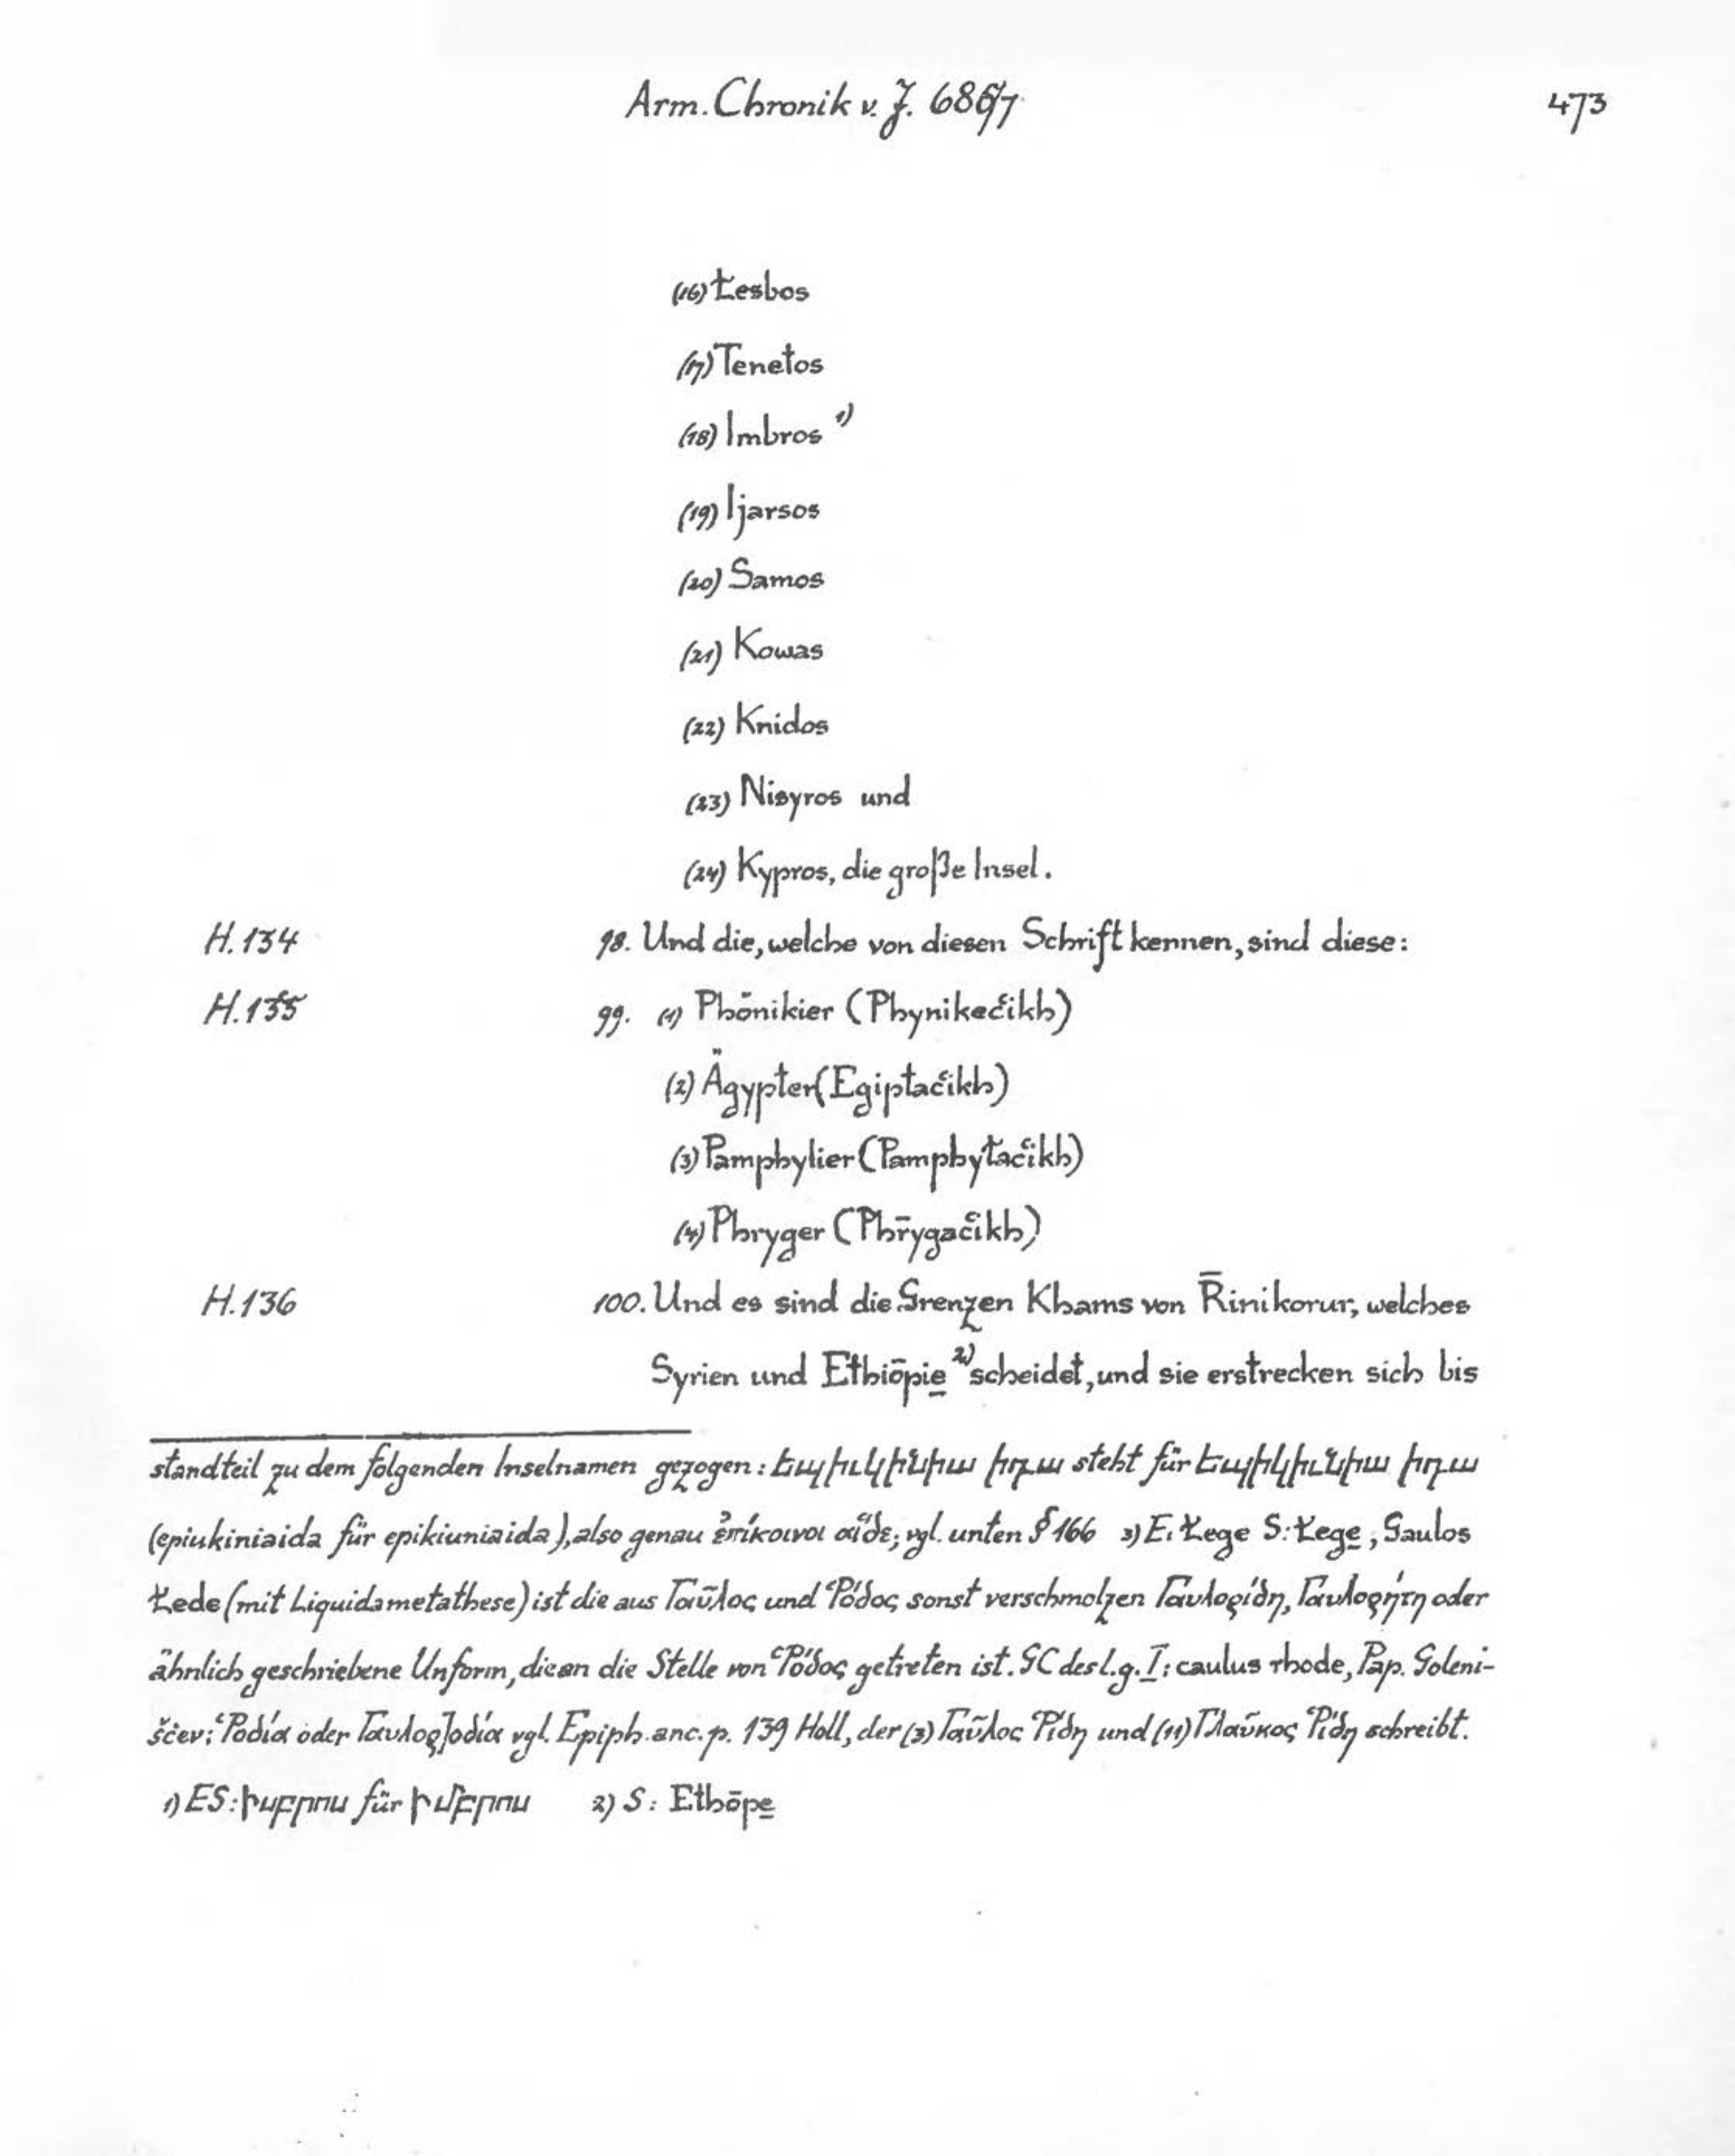 Arm. Chronik v. J. 686/7 473
(16) Łesbos
(17) Tenetos
(18) Imbros ¹⁾
(19) Ijarsos
(20) Samos
(21) Kowas
(22) Knidos
(23) Nisyros und
(24) Kypros, die große Insel.
H. 134 98. Und die, welche von diesen Schrift kennen, sind diese:
H. 135 99. (1) Phönikier (Phynikečikh)
(2) Ägypter (Egiptačikh)
(3) Pamphylier (Pamphyłačikh)
(4) Phryger (Phr̄ygačikh)
H. 136 100. Und es sind die Grenzen Khams von R̄inikorur, welches
Syrien und Ethiōpie̱ ²⁾ scheidet, und sie erstrecken sich bis
standteil zu dem folgenden Inselnamen gezogen: եպիւկինիա իդա steht für եպիկիւնիա իդա
(epiukiniaida für epikiuniaida), also genau ἐπίκοινοι αἵδε; vgl. unten § 166 3) E: Łege S: Łege̱, Gaulos
Łede (mit Liquidametathese) ist die aus Γαῦλος und Ῥόδος sonst verschmolzen Γαυλορίδη, Γαυλορήτη oder
ähnlich geschriebene Unform, die an die Stelle von Ῥόδος getreten ist. GC des l.g. I: caulus rhode, Pap. Goleni-
ščev: Ῥοδία oder Γαυλος]οδία vgl. Epiph. anc. p. 139 Holl, der (3) Γαῦλος Ῥίδη und (11) Γλαῦκος Ῥίδη schreibt.
1) ES: իսբրոս für իմբրոս 2) S: Ethōpe̱